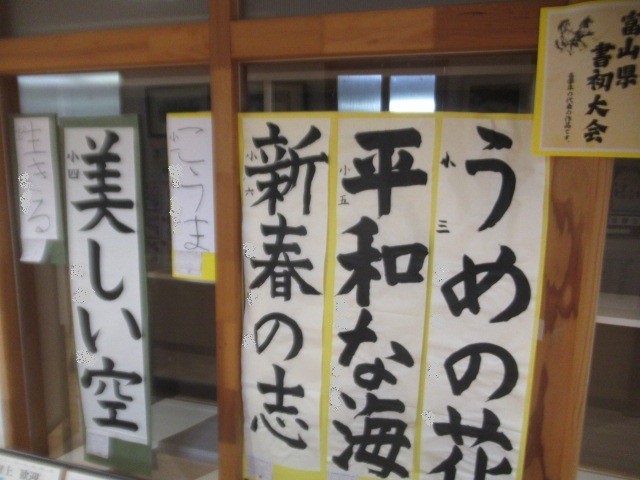 富山県
書初大会
うめの花
小三
平和な海
小五
新春の志
小六
こうま
小
美しい空
小四
生きる